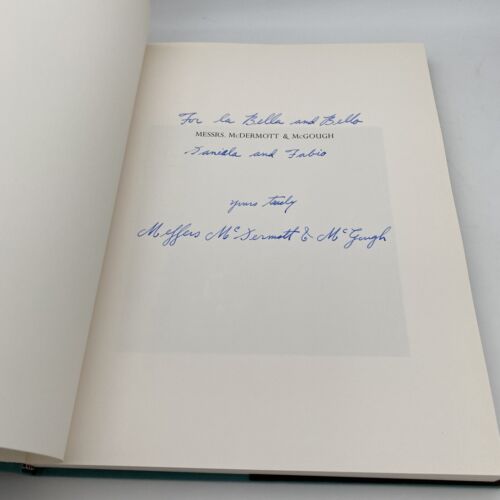 For la Bella and Bello
MESSRS. MCDERMOTT & MCGOUGH
Daniela and Fabio
yours truly
Meffers McDermott & McGough